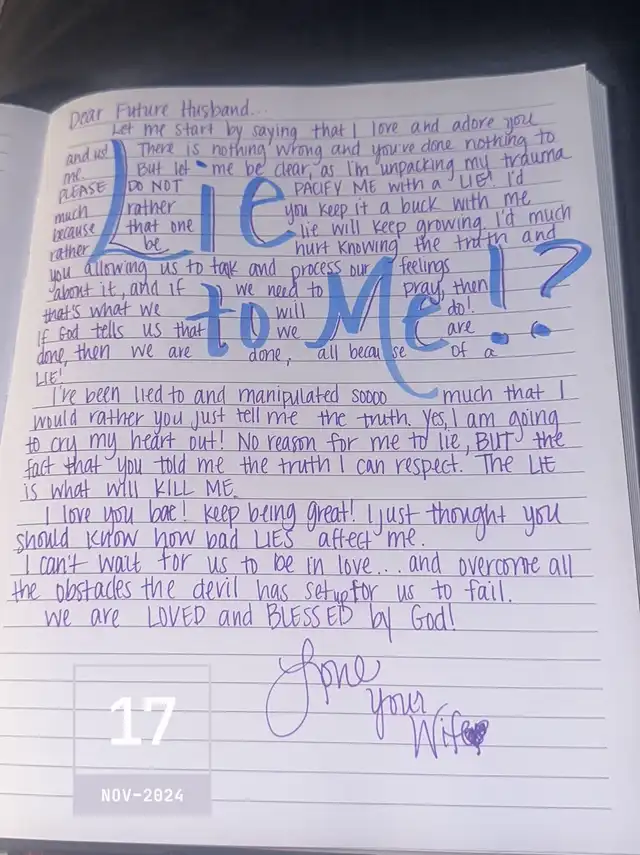 Dear Future Husband...
Let me start by saying that I love and adore you
and us! There is nothing wrong and you've done nothing to
me. But let me be clear, as I'm unpacking my trauma
PLEASE DO NOT PACIFY ME with a LIE! I'd
much rather you keep it a buck with me
because that one lie will keep growing. I'd much
rather be hurt knowing the truth and
you allowing us to talk and process our feelings
about it, and if we need to pray, then
that's what we will do!
If God tells us that we are
done, then we are done, all because of a
LIE!
Lie
to Me!?
I've been lied to and manipulated soooo much that I
would rather you just tell me the truth. Yes, I am going
to cry my heart out! No reason for me to lie, BUT the
fact that you told me the truth I can respect. The LIE
is what will KILL ME.
I love you bae! Keep being great! I just thought you
should know how bad LIES affect me.
I can't wait for us to be in love... and overcome all
the obstacles the devil has setup for us to fail.
We are LOVED and BLESSED by God!
Love
your
Wife
17
NOV-2024